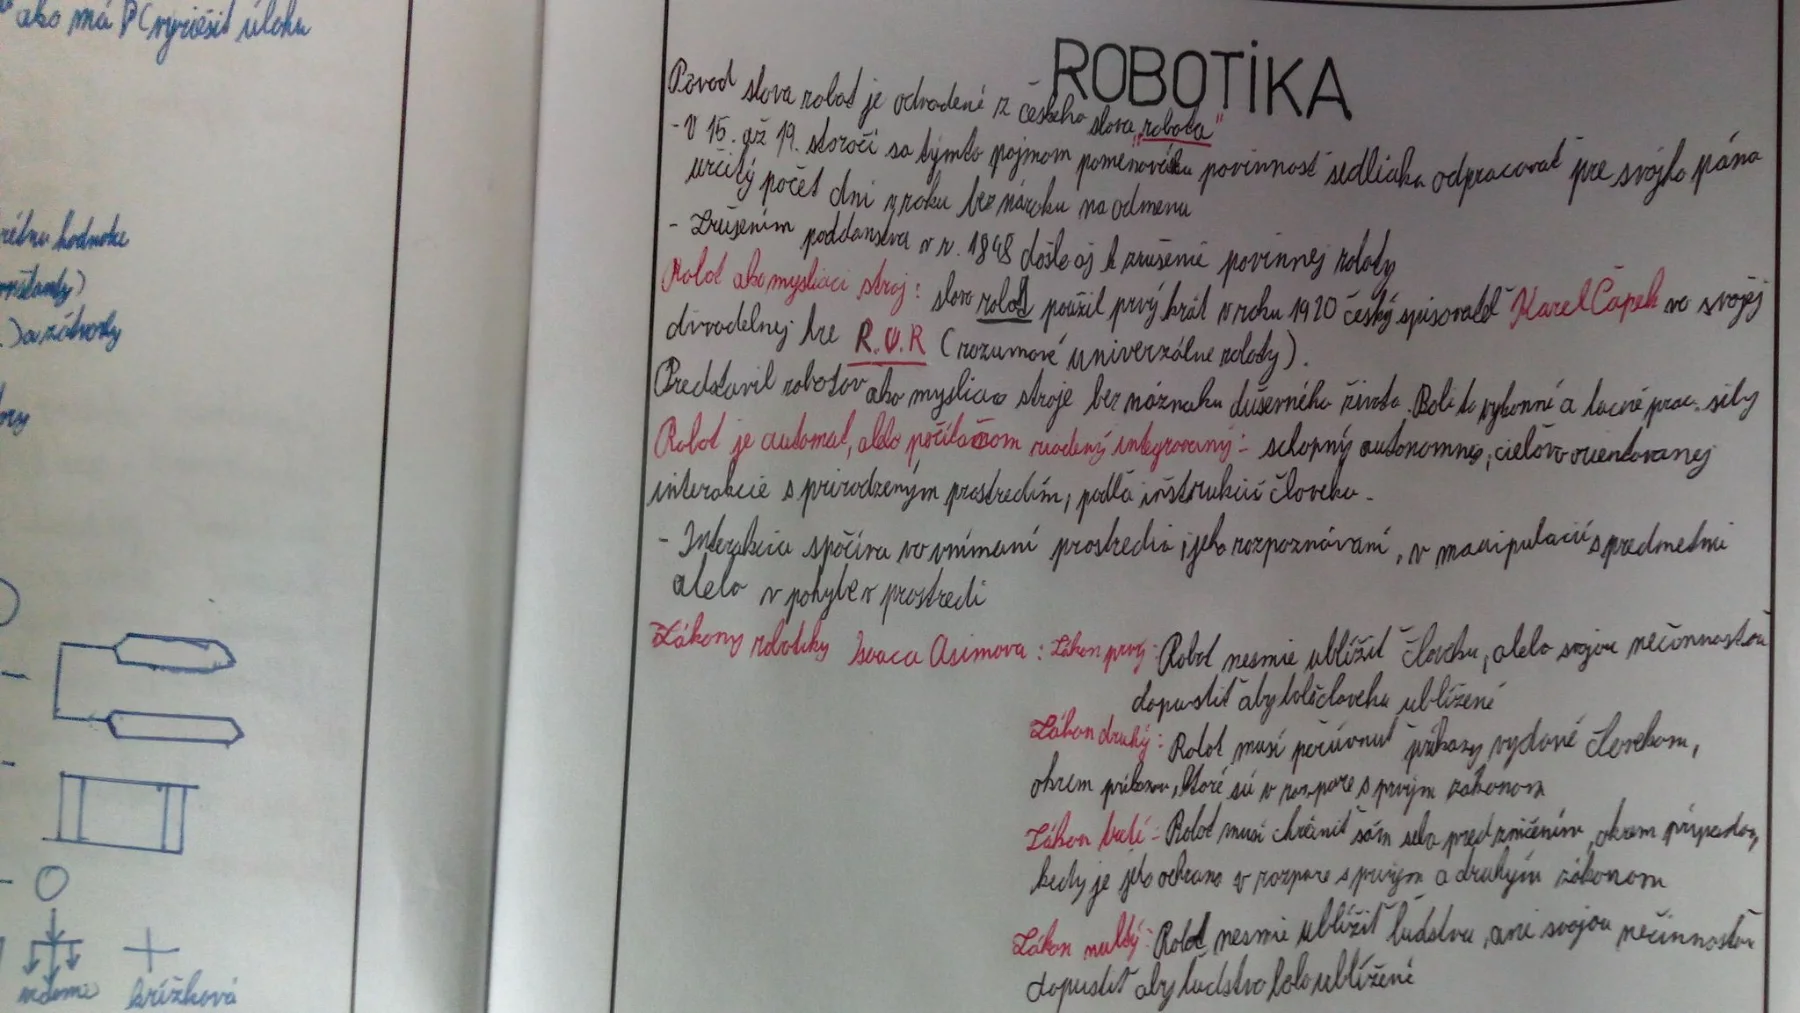 ako má PC vyriešiť úlohu
hodnotu
) a závody
vedome krížková
ROBOTIKA
Pôvod slova robot je odvodené z českého slova "robota"
- V 15. až 19. storočí sa týmto pojmom pomenovávala povinnosť sedliaka odpracovať pre svojho pána
určitý počet dni v roku bez nároku na odmenu
- Zrušením poddanstva v r. 1848 došlo aj k zrušenie povinnej roboty
Robot ako mysliaci stroj: slovo robot použil prvý krát v roku 1920 český spisovateľ Karel Čapek vo svojej
divadelnej hre R.U.R (rozumové univerzálne roboty).
Predstavil robotov ako mysliace stroje bez náznaku duševného života. Boli to výkonné a lacné prac. sily
Robot je automat, alebo počítačom riadený integrovaný - schopný autonomnej, cieľovo orientovanej
interakcie s prirodzeným prostredím, podľa inštrukcií človeka.
- Interakcia spočíva vo vnímaní prostredia, jeho rozpoznávaní, v manipulacií s predmetmi
alebo v pohybe v prostredi
Zákony robotiky Isaaca Asimova: Zákon prvý: Robot nesmie ublížiť človeku, alebo svojou nečinnosťou
dopustiť aby bolo človeku ublížené
Zákon druhý: Robot musí počúvnuť príkazy vydané človekom,
okrem príkazov, ktoré sú v rozpore s prvým zákonom
Zákon tretí - Robot musí chrániť sám seba pred zničením, okrem prípadov,
kedy je jeho ochrana v rozpore s prvým a druhým zákonom
Zákon nultý: Robot nesmie ublížiť ľudstvu, ani svojou nečinnosťou
dopustiť aby ľudstvo bolo ublížené